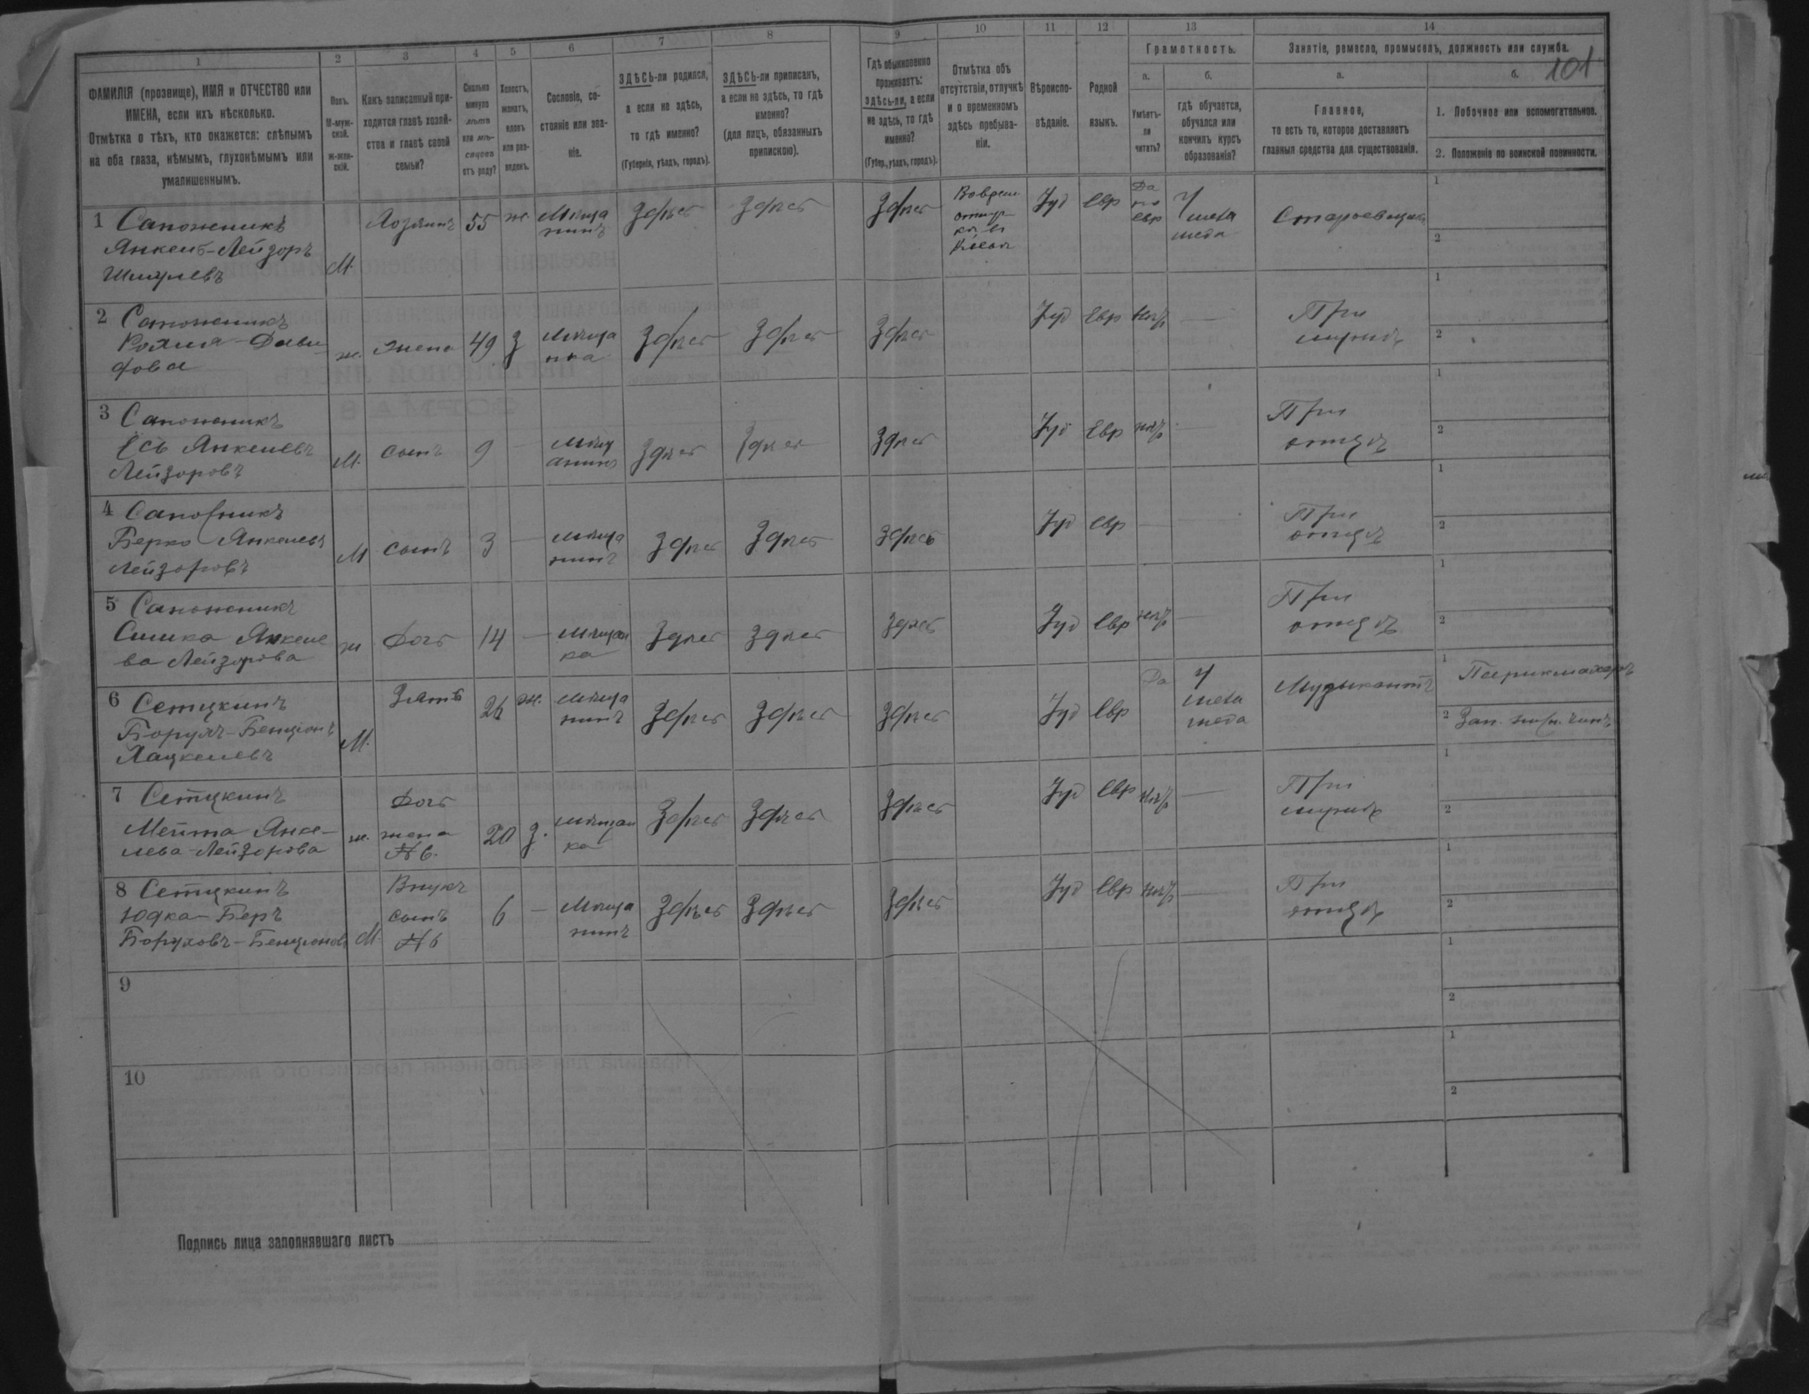 101
1 2 3 4 5 6 7 8 9 10 11 12 13 14
ФАМИЛІЯ (прозвище), ИМЯ и ОТЧЕСТВО или
ИМЕНА, если ихъ нѣсколько.
Отмѣтка о тѣхъ, кто окажется: слѣпымъ
на оба глаза, нѣмымъ, глухонѣмымъ или
умалишеннымъ.
Полъ.
М-муж-
ской.
Ж-жен-
скій.
Какъ записанный при-
ходится главѣ хозяй-
ства и главѣ своей
семьи?
Сколько
минуло
лѣтъ
или мѣ-
сяцевъ
отъ роду?
Холостъ,
женатъ,
вдовъ
или раз-
веденъ.
Сословіе, со-
стояніе или зва-
ніе.
ЗДѢСЬ-ли родился,
а если не здѣсь,
то гдѣ именно?
(Губернія, уѣздъ, городъ).
ЗДѢСЬ-ли приписанъ,
а если не здѣсь, то гдѣ
именно?
(для лицъ, обязанныхъ
припискою).
Гдѣ обыкновенно
проживаетъ:
здѣсь-ли, а если
не здѣсь, то гдѣ
именно?
(Губер., уѣздъ, городъ).
Отмѣтка объ
отсутствіи, отлучкѣ
и о временномъ
здѣсь пребыва-
ніи.
Вѣроиспо-
вѣданіе.
Родной
языкъ.
Грамотность.
а.
Умѣетъ-
ли
читать?
б.
гдѣ обучается,
обучался или
кончилъ курсъ
образованія?
Занятіе, ремесло, промыселъ, должность или служба.
а.
Главное,
то есть то, которое доставляетъ
главныя средства для существованія.
б.
1. Побочное или вспомогательное.
2. Положеніе по воинской повинности.
1 Сапожникъ
Янкель-Лейзоръ
Шмулевъ
М. Хозяинъ 55 ж. Мѣща
нинъ
Здѣсь Здѣсь Здѣсь
Іуд Евр
Да
по
евр
У
мела
меда
1
2
2 Сапожникъ
Рохля Дави
дова
ж. жена 49 з Мѣща
нка
Здѣсь Здѣсь Здѣсь Іуд Евр Нѣт —
При
мужѣ
1
2
3 Сапожникъ
Есь Янкелевъ
Лейзоровъ
М. сынъ 9 — Мѣщ
анинъ
Здѣсь Здѣсь Здѣсь Іуд Евр нѣт —
При
отцѣ
1
2
4 Сапожникъ
Берко Янкелевъ
Лейзоровъ
М сынъ 3 — Мѣща
нинъ
Здѣсь Здѣсь Здѣсь Іуд Евр — —
При
отцѣ
1
2
5 Сапожникъ
Симка Янкеле
ва Лейзорова
ж. Дочь 14 — Мѣщан
ка
Здѣсь Здѣсь Здѣсь Іуд Евр нѣт —
При
отцѣ
1
2
6 Сетцкинъ
Борухъ-Бенціонъ
Хацкелевъ
М. Зять 26 ж. Мѣща
нинъ
Здѣсь Здѣсь Здѣсь Іуд Евр Да У
мела
меда
Музыкантъ
1 Парикмахеръ
2 Зап. ниж. чинъ
7 Сетцкинъ
Мейта Янке-
лева-Лейзорова
ж. Дочь
жена
№ 6.
20 з. Мѣщан
ка
Здѣсь Здѣсь Здѣсь Іуд Евр Нѣт —
При
мужѣ
1
2
8 Сетцкинъ
Юдка-Беръ
Боруховъ-Бенціоновъ
М. Внукъ
сынъ
№ 6
6 — Мѣща
нинъ
Здѣсь Здѣсь Здѣсь Іуд Евр Нѣт —
При
отцѣ
1
2
9
1
2
10
1
2
Подпись лица заполнявшаго листъ